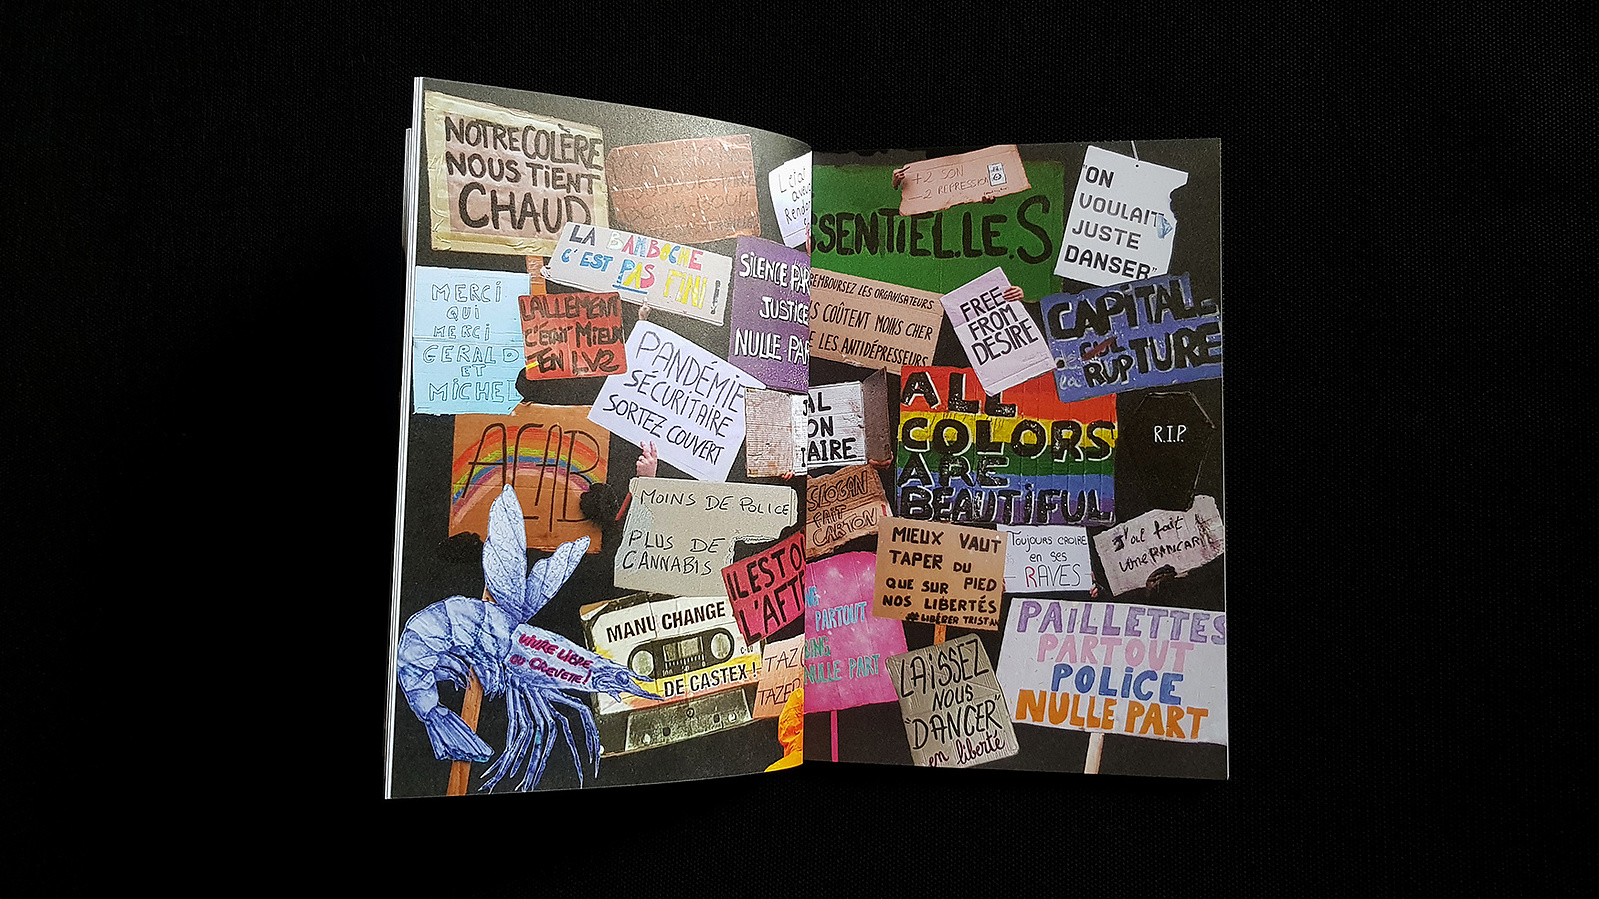 NOTRE COLÈRE
NOUS TIENT
CHAUD
LA BAMBOCHE
C'EST PAS FINI !
SILENCE PAR
JUSTICE
NULLE PAR
MERCI
QUI
MERCI
GERALD
ET
MICHEL
LALLEMENT
C'ÉTAIT MIEUX
EN LV2
PANDÉMIE
SÉCURITAIRE
SORTEZ COUVERT
ACAB
MOINS DE POLICE
PLUS DE
CANNABIS
IL EST TO
L'AFT
MANU CHANGE
DE CASTEX !
TAZ
TAZER
VIVRE LIBRE
OU CREVETTE!
+2 SON
-2 REPRESSION
SSENTIEL.LE.S
"ON
VOULAIT
JUSTE
DANSER"
REMBOURSEZ LES ORGANISATEURS
S COÛTENT MOINS CHER
E LES ANTIDÉPRESSEURS
FREE
FROM
DESIRE
CAPITALE
de
la RUPTURE
AL
ON
AIRE
ALL
COLORS
ARE
BEAUTIFUL
R.I.P.
SLOGAN
FAIT
CARTON!
MIEUX VAUT
TAPER DU
QUE SUR PIED
NOS LIBERTÉS
#LIBÉRER TRISTAN
TOUJOURS CROIRE
en ses
RAVES
J'ai fait
une PANCARTE
NG
PARTOUT
ING
NULLE PART
LAISSEZ
NOUS
"DANCER"
en liberté
PAILLETTES
PARTOUT
POLICE
NULLE PART